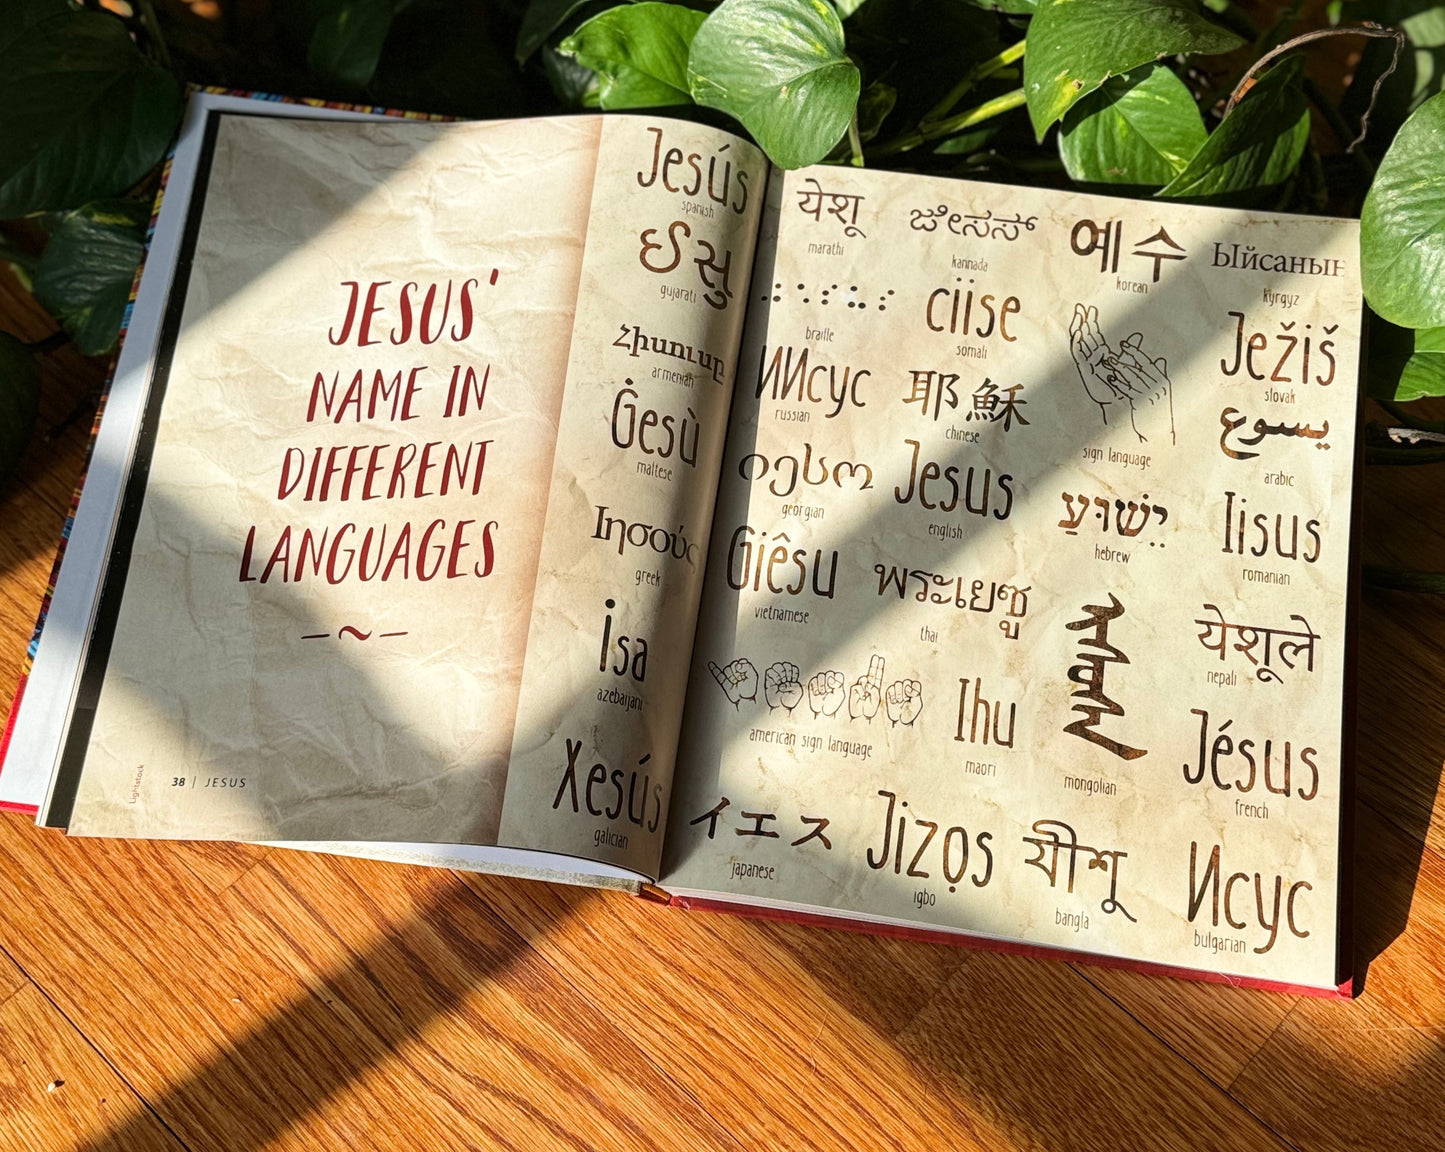 JESUS'
NAME IN
DIFFERENT
LANGUAGES
Lightstock
38 | JESUS
Jesús
spanish
ઈસુ
gujarati
Հիսուսը
armenian
Ġesù
maltese
Ιησούς
greek
İsa
azebaijani
Xesús
galician
येशू
marathi
ಜೀಸಸ್
kannada
예수
korean
Ыйсанын
kyrgyz
braille
ciise
somali
sign language
Ježiš
slovak
ИИсус
russian
耶穌
chinese
يسوع
arabic
იესო
georgian
Jesus
english
יֵשׁוּעַ
hebrew
Iisus
romanian
Giêsu
vietnamese
พระเยซู
thai
mongolian
येशूले
nepali
american sign language
Ihu
maori
Jésus
french
イエス
japanese
Jizọs
igbo
যীশু
bangla
Исус
bulgarian